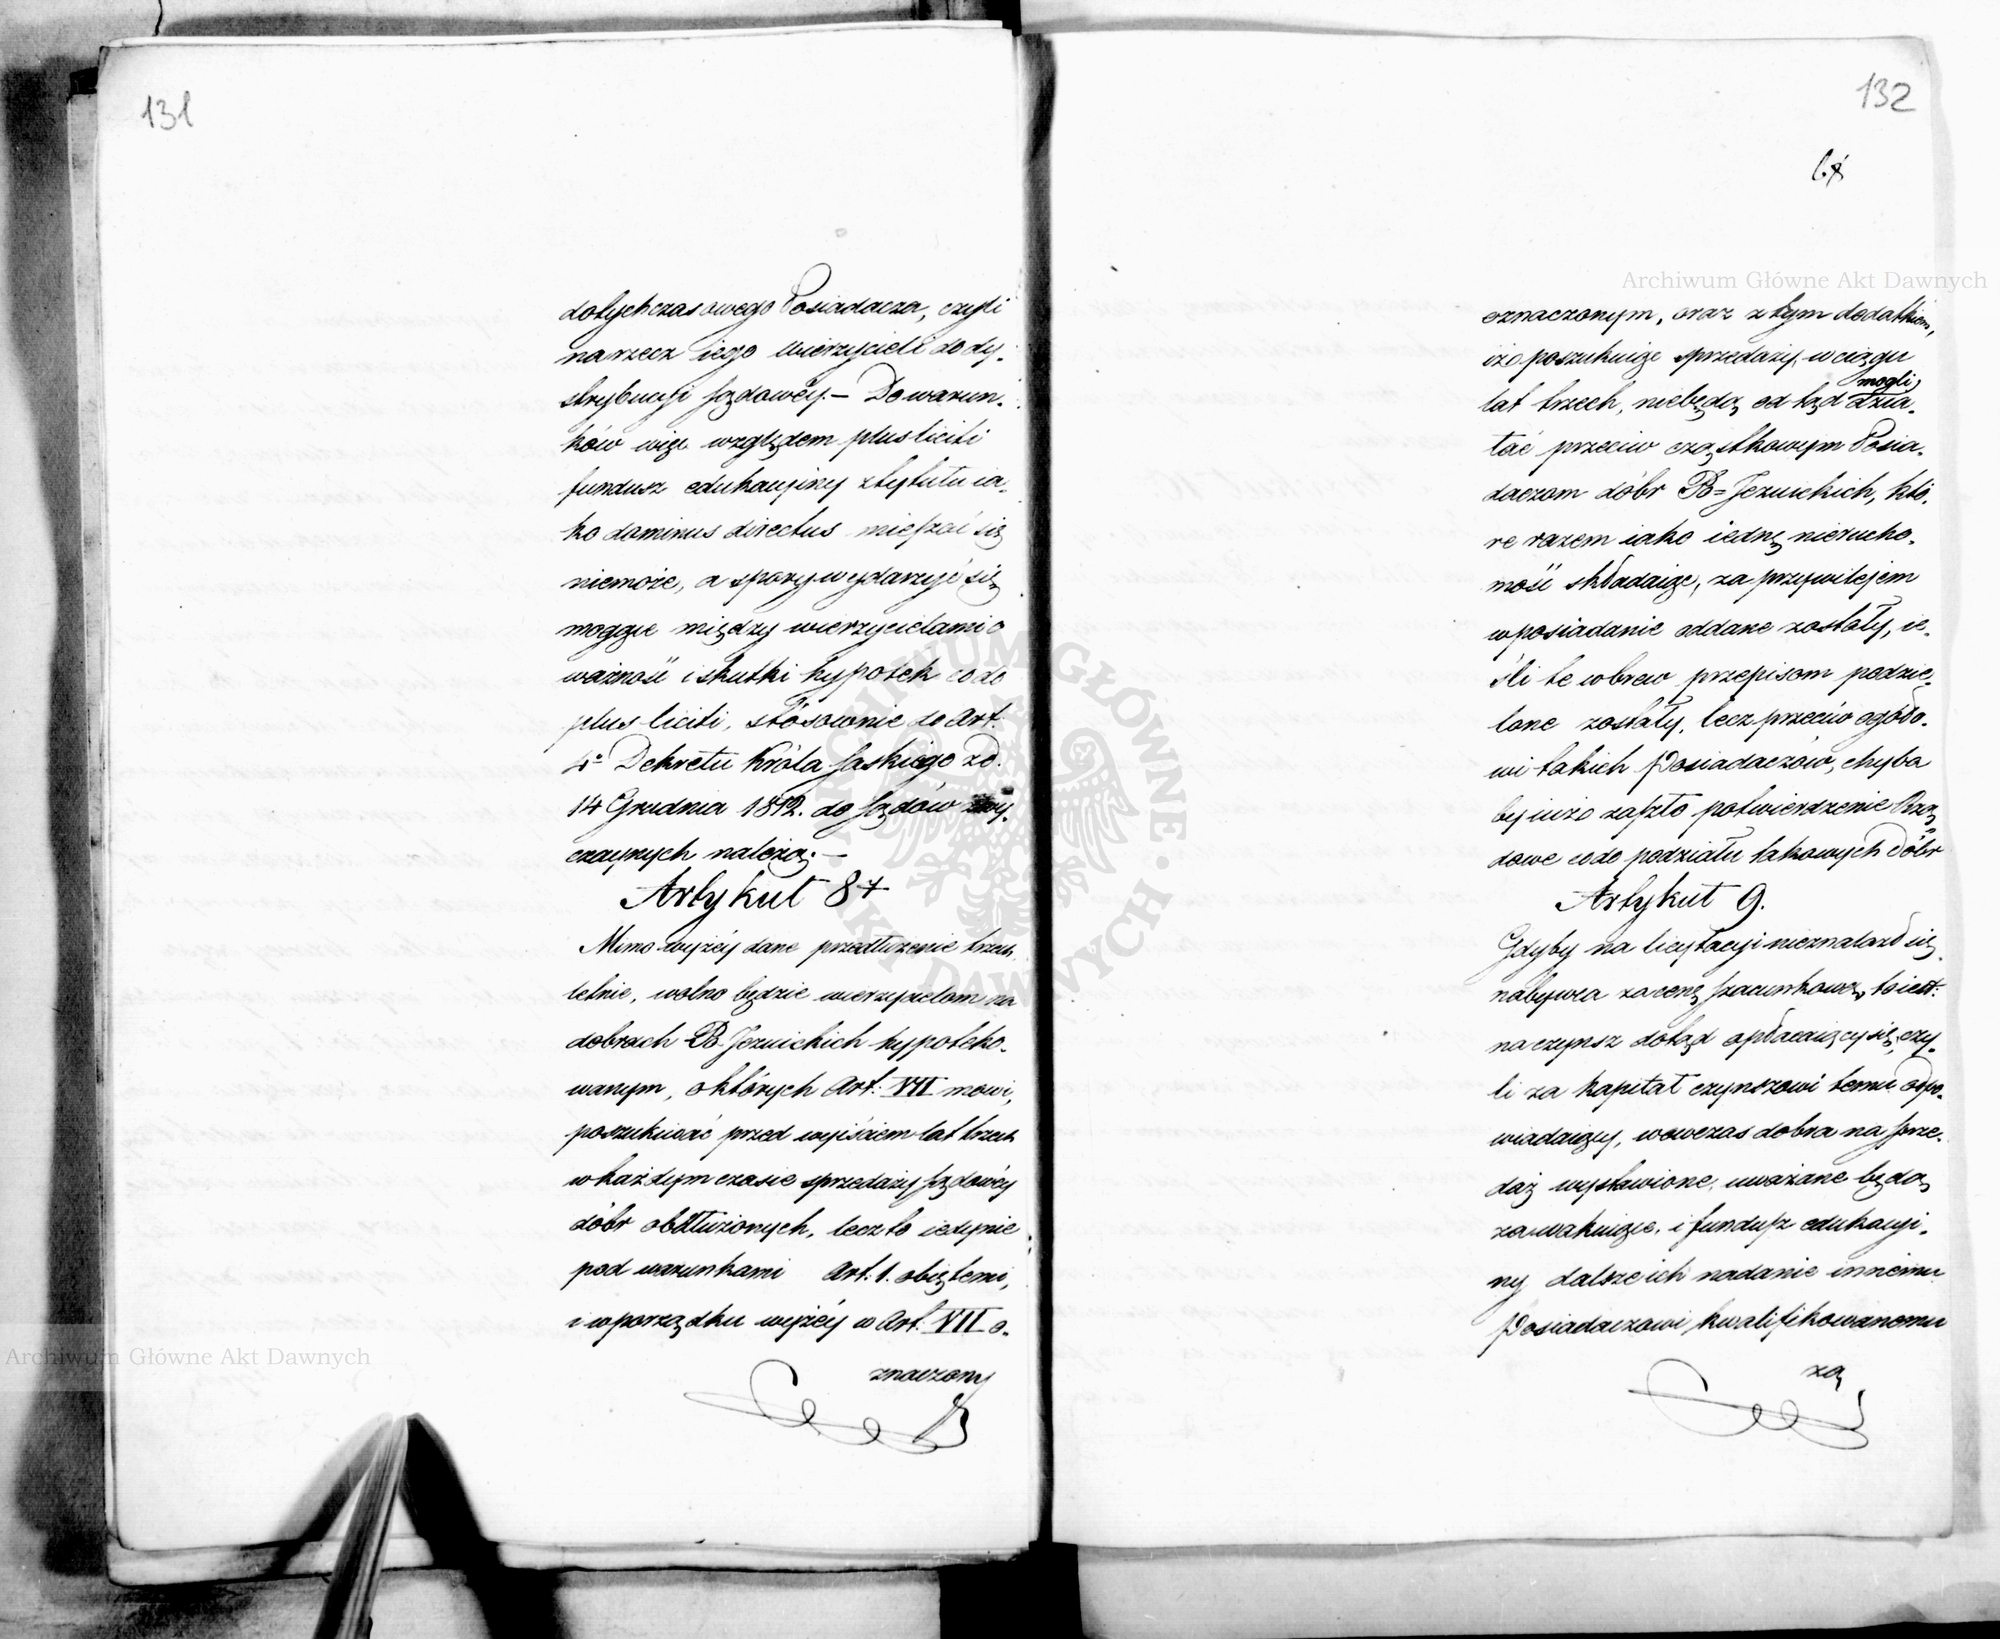 131
dotychczasowego Posiadacza, czyli
na rzecz iego wierzycieli do dy-
strybucyi sądowéy.— Do warun-
ków więc względem plusliciti
fundusz edukacyiny z tytułu ia-
ko dominus directus mieszać się
niemoże, a spory wydarzyć się
mogące między wierzycielami o
ważność i skutki hypotek co do
plus liciti, stósownie do Art:
4º Dekretu Króla Saskiego z d.
14 Grudnia 1812. do sądów zwy-
czaynych należą.—
Artykuł 8
Mimo wyżéy dane przedłużenie trzech
letnie, wolno będzie wierzycielom na
dobrach B. Jezuickich hypoteko-
wanym, o których Art: VII mowi,
poszukiwać przed wyiściem lat trzech
w każdym czasie sprzedaży sądowéy
dóbr obdłużonych, lecz to iedynie
pod warunkami Art: 1. obiętemi,
i w porządku wyżéy w Art: VII o-
znaczony
132
oznaczonym, oraz z tym dodatkiem,
iże poszukuiąc sprzedaży w ciągu
mogli
lat trzech, niebędą od tąd dzia-
łać przeciw cząstkowym Posia-
daczom dóbr B= Jezuickich, któ-
re razem iako iedną nierucho-
mość składaiąc, za przywileiem
w posiadanie oddane zostały, ie-
śli te wbrew przepisom podzie-
lone zostały, lecz przeciw ogóło-
wi takich Posiadaczów, chyba
by iuże zaszło potwierdzenie Rzą
dowe co do podziału takowych Dóbr
Artykuł 9.
Gdyby na licytacyi nieznalazł się
nabywca za cenę szacunkową, to iest:
na czynsz dotąd opłacaiący się, czy-
li za kapitał czynszowi temu odpo-
wiadaiący, wowczas dobra na sprze-
daż wystawione, uważane będą
za wakuiące, i fundusz edukacyi-
ny dalsze ich nadanie innemu
Posiadaczowi kwalifikowanemu
za
Archiwum Główne Akt Dawnych
Archiwum Główne Akt Dawnych
ARCHIWUM GŁÓWNE · AKT DAWNYCH ·